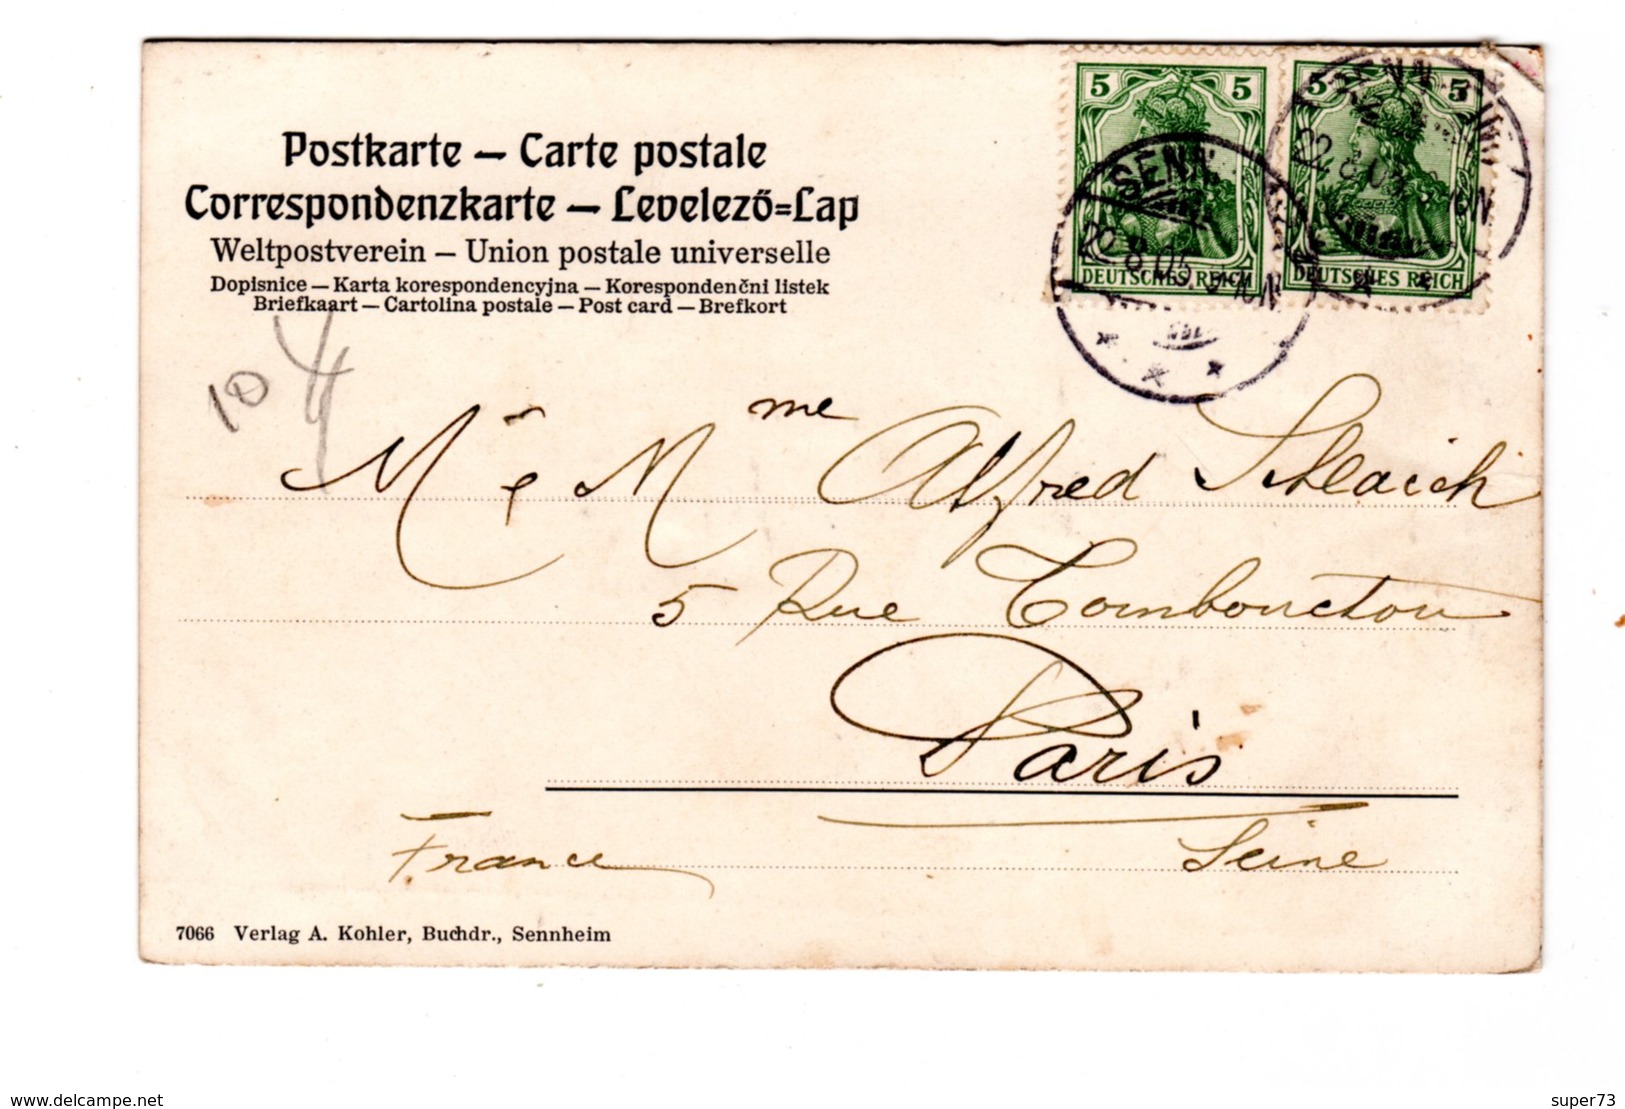 Postkarte — Carte postale
Correspondenzkarte — Levelező=Lap
Weltpostverein — Union postale universelle
Dopisnice — Karta korespondencyjna — Korespondenčni listek
Briefkaart — Cartolina postale — Post card — Brefkort
5 5
DEUTSCHES REICH
5 5
DEUTSCHES REICH
SENN
22.8.05
10
Mr & Mme Alfred Schlaich
5 Rue Combouctou
Paris
France Seine
7066 Verlag A. Kohler, Buchdr., Sennheim
www.delcampe.net
super73